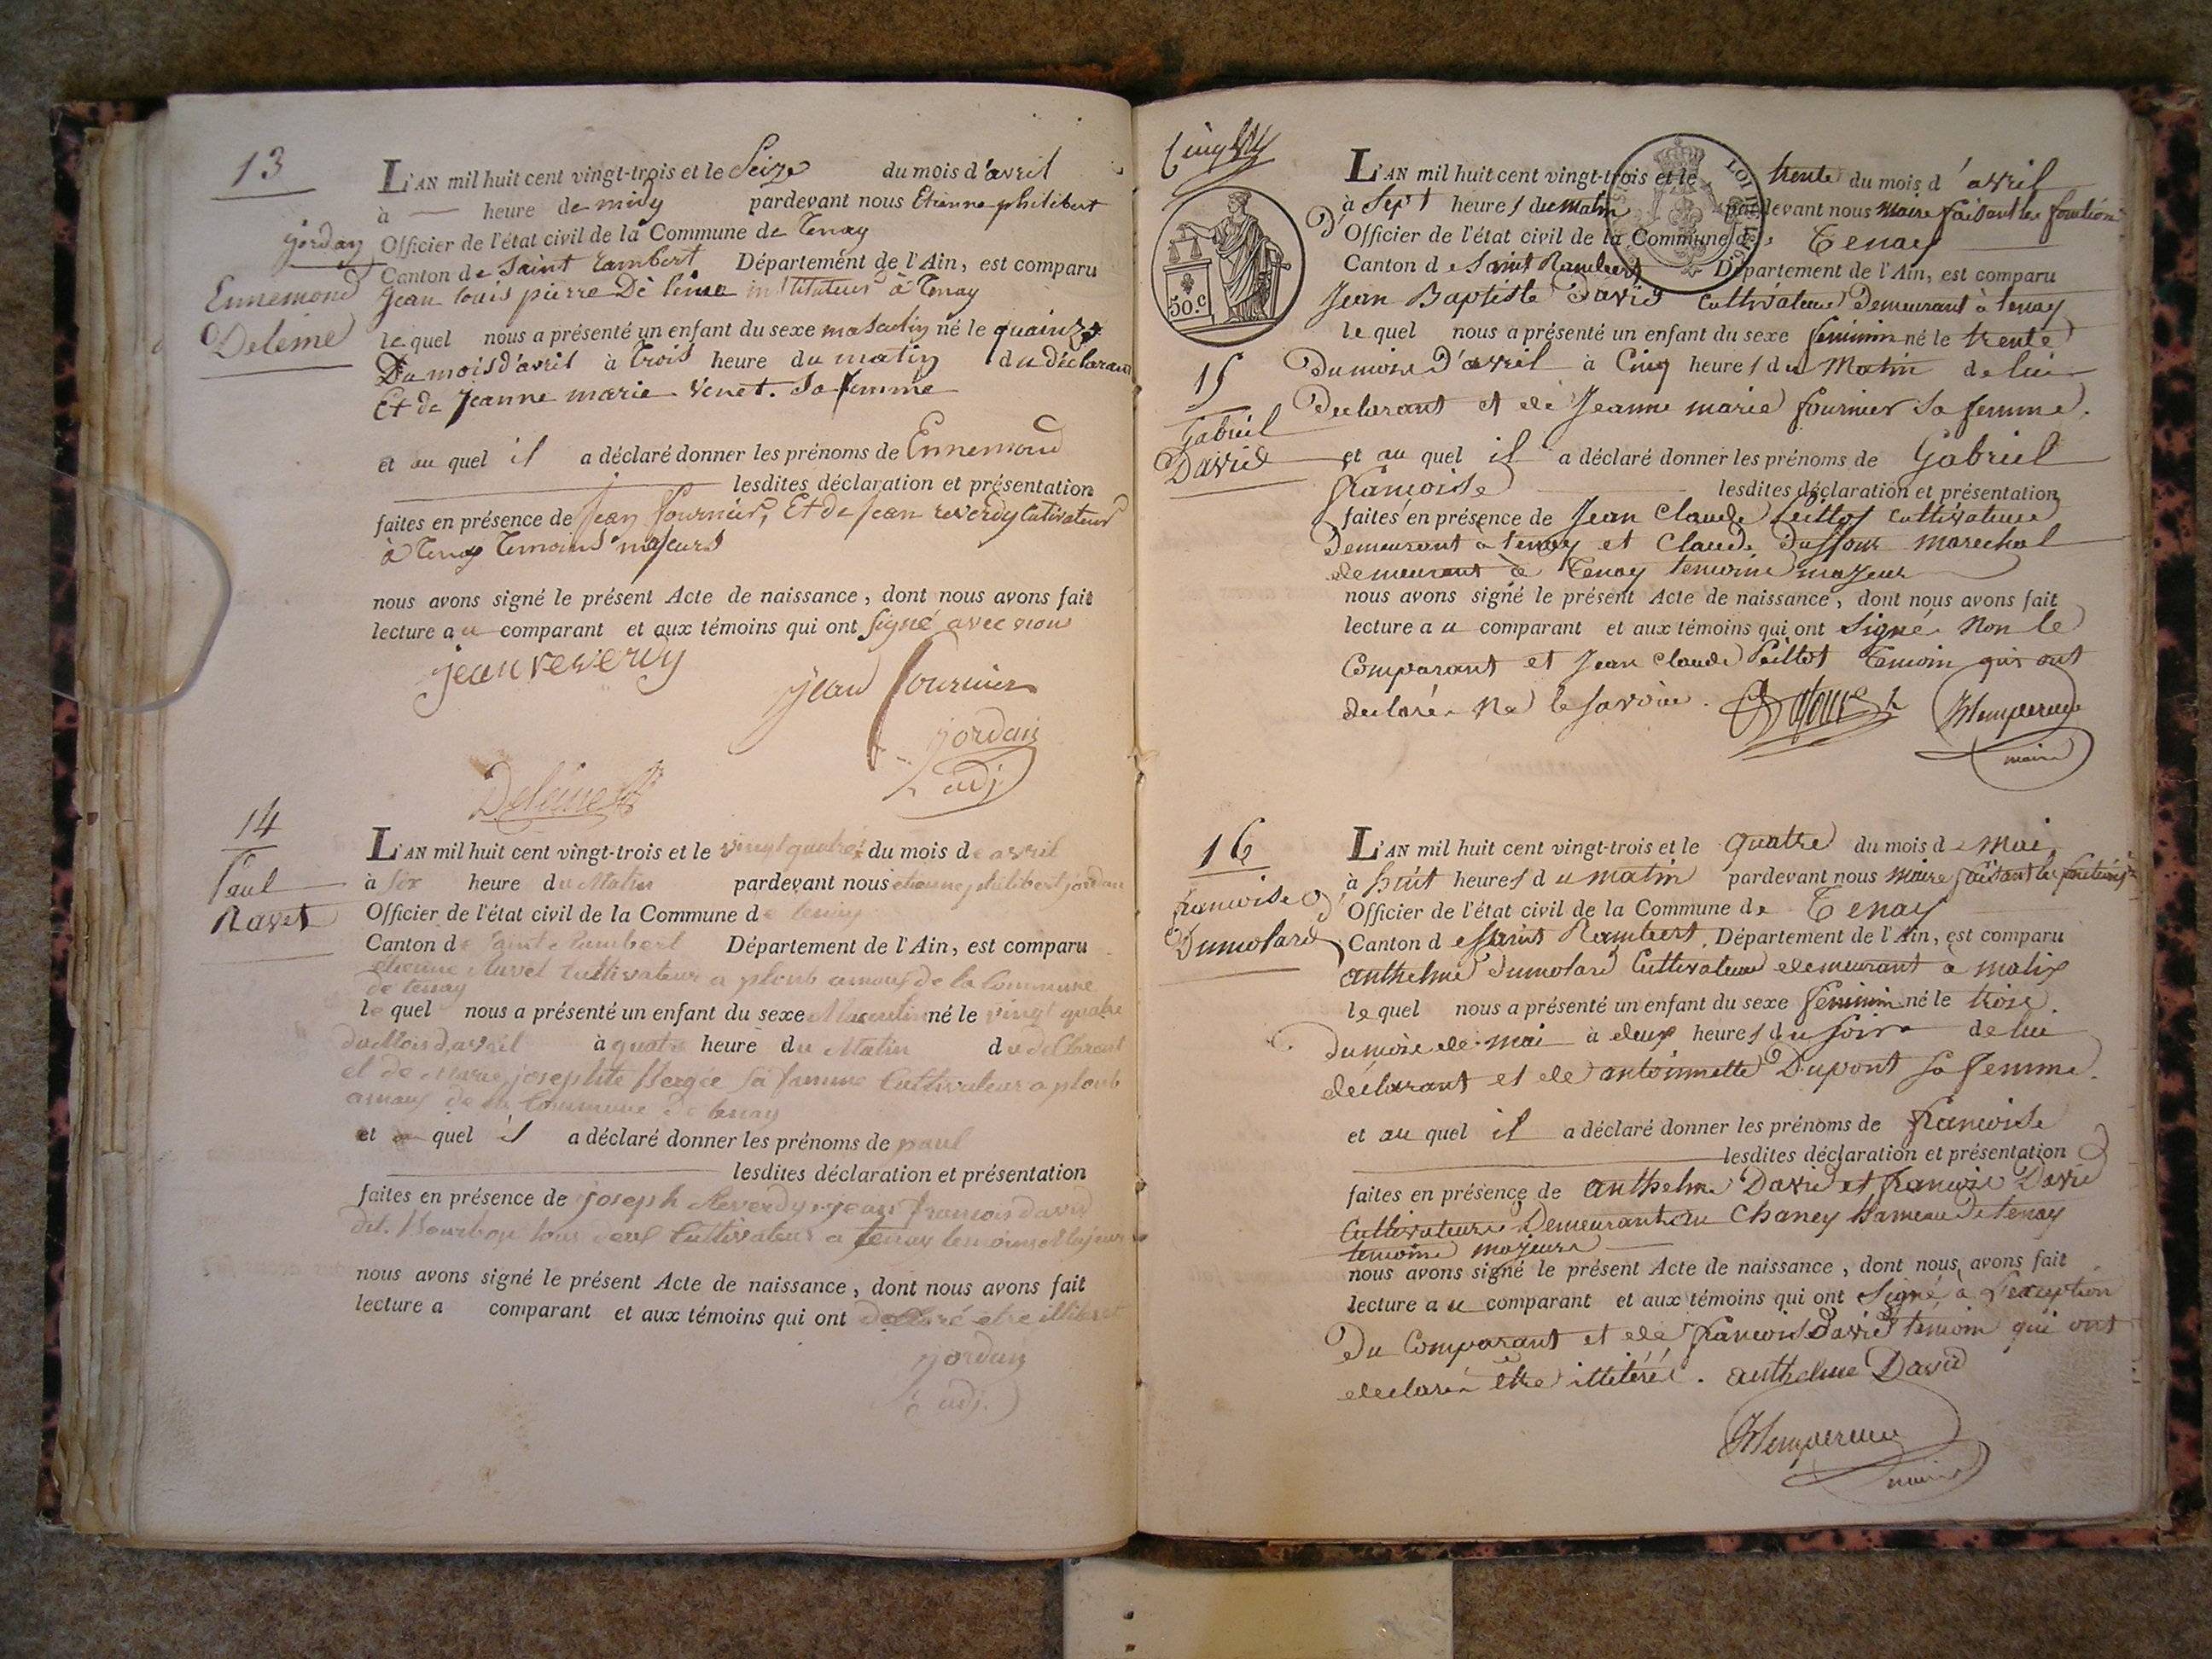 13
L'AN mil huit cent vingt-trois et le Seize du mois d'avril
à heure de midy pardevant nous Etienne philibert
jordan Officier de l'état civil de la Commune de Tenay
Canton de Saint Rambert Département de l'Ain, est comparu
Ennemond
Deleme
jean louis pierre instituteur à Tenay
le quel nous a présenté un enfant du sexe masculin né le quainze
Du mois d'avril à trois heure du matin du déclarant
Et de jeanne marie venet. Sa femme
et au quel il a déclaré donner les prénoms de Ennemond
lesdites déclaration et présentation
faites en présence de jean fournier, Et de jean reverdy Cutivateur
à Tenay temoins majeurs
nous avons signé le présent Acte de naissance, dont nous avons fait
lecture au comparant et aux témoins qui ont signé avec nous
jean reverdy
jean fournier
jordan
adj.
14
Paul
Ravet
L'AN mil huit cent vingt-trois et le vingt quatre du mois de avril
à six heure du Matin pardevant nous etienne philibert jordan
Officier de l'état civil de la Commune de tenay
Canton de Saint Rambert Département de l'Ain, est comparu
etienne Ravet Cultivateur a de la Commune
de tenay
le quel nous a présenté un enfant du sexe Masculin né le vingt quatre
du Mois d'avril à quatre heure du Matin du declarant
et de Marie josephte sa famme Cultivateur a
de la Commune de tenay
et au quel il a déclaré donner les prénoms de paul
lesdites déclaration et présentation
faites en présence de joseph Reverdy, jean francois david
dit. Bourbon tous deux Cultivateur a tenay temoins Majeur
nous avons signé le présent Acte de naissance, dont nous avons fait
lecture a comparant et aux témoins qui ont
jordan
adj.
Cinq
50.c
LOI
L'AN mil huit cent vingt-trois et le trente du mois d'avril
à Sept heures du matin pardevant nous maire faisant les fonctions
D'Officier de l'état civil de la Commune de Tenay
Canton de Saint Rambert Département de l'Ain, est comparu
Jean Baptiste David Cultivateur Demeurant à tenay
le quel nous a présenté un enfant du sexe feminin né le trente
15
Gabriel
David
Du mois D'avril à Cinq heures du Matin de lui
Declarant et de Jeanne marie fournier Sa femme.
et au quel il a déclaré donner les prénoms de Gabriel
francoise lesdites déclaration et présentation
faites en présence de Jean Claude cultivateur
Demeurant à tenay et Claude marechal
demeurant à Tenay temoins majeur
nous avons signé le présent Acte de naissance, dont nous avons fait
lecture au comparant et aux témoins qui ont Signé Non le
Comparant et Jean Claude temoin qui ont
declaré Ne le Savoir.
maire
16
francoise
Dumolard
L'AN mil huit cent vingt-trois et le quatre du mois de Mai
à huit heures du matin pardevant nous maire faisant les fonctions
D'Officier de l'état civil de la Commune de Tenay
Canton de Saint Rambert, Département de l'Ain, est comparu
anthelme Dumolard Cultivateur demeurant à
le quel nous a présenté un enfant du sexe feminin né le trois
Du mois de mai à deux heures du Soir de lui
déclarant et de antoinnette Dupont sa femme.
et au quel il a déclaré donner les prénoms de francoise
lesdites déclaration et présentation
faites en présence de anthelme David et francois David
Cultivateurs Demeurant au Chaney hameau de tenay
temoins majeurs
nous avons signé le présent Acte de naissance, dont nous avons fait
lecture au comparant et aux témoins qui ont Signé à L'exception
Du Comparant et de francois David temoin qui ont
declaré être illitéré. anthelme David
maire